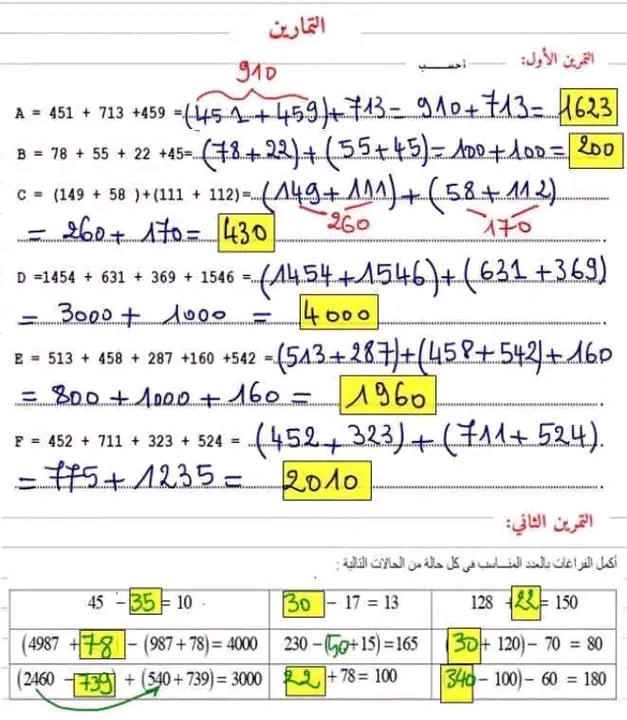 التمارين
التمرين الأول: احسب
910
A = 451 + 713 +459 =(451 + 459)+713= 910+713= 1623
B = 78 + 55 + 22 +45= (78+22)+(55+45)=100+100= 200
C = (149 + 58 )+(111 + 112)= (149+111)+(58+112)
260 170
= 260+ 170= 430
D =1454 + 631 + 369 + 1546 = (1454+1546)+(631+369)
= 3000+ 1000 = 4000
E = 513 + 458 + 287 +160 +542 =(513+287)+(458+542)+160
= 800+1000+160= 1960
F = 452 + 711 + 323 + 524 = (452+323)+(711+524).
=775+1235= 2010
التمرين الثاني:
أكمل الفراغات بالعدد المناسب في كل حالة من الحالات التالية :
45 -35= 10 30 - 17 = 13 128 +22= 150
(4987 +78 - (987+78)= 4000 230 -(50+15)=165 (30+ 120)- 70 = 80
(2460 -739) + (540+739)= 3000 22 +78= 100 340- 100)- 60 = 180